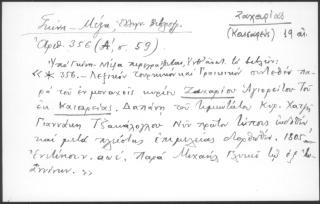 Γκίνη - Μέξα Ελλην. Βιβλιογρ.
Ζαχαρίας
Ἀριθ. 356 (Α', σ. 59)
(Καισαρεύς) 19 αἰ.
Ὑπὸ Γκίνη - Μέξα περιγράφεται,
«* 356. - Λεξικὸν τουρκικὸν καὶ Γραικικὸν συντεθὲν πα-
ρὰ τοῦ ἐν μοναχοῖς κυρίου Ζαχαρίου Ἁγιορείτου τοῦ
ἐκ Καισαρείας. Δαπάνῃ τοῦ τιμιωτάτου Κυρ. Χατζῆ
Γιαννάκη Τζακάλογλου Νῦν πρῶτον τύποις ἐκδοθὲν
καὶ μετὰ πλείστης ἐπιμελείας διορθωθέν. 1805
Ἐνετίησιν. Παρὰ Μιχαὴλ Γλυκεῖ τῷ ἐξ Ἰω-
αννίνων. »